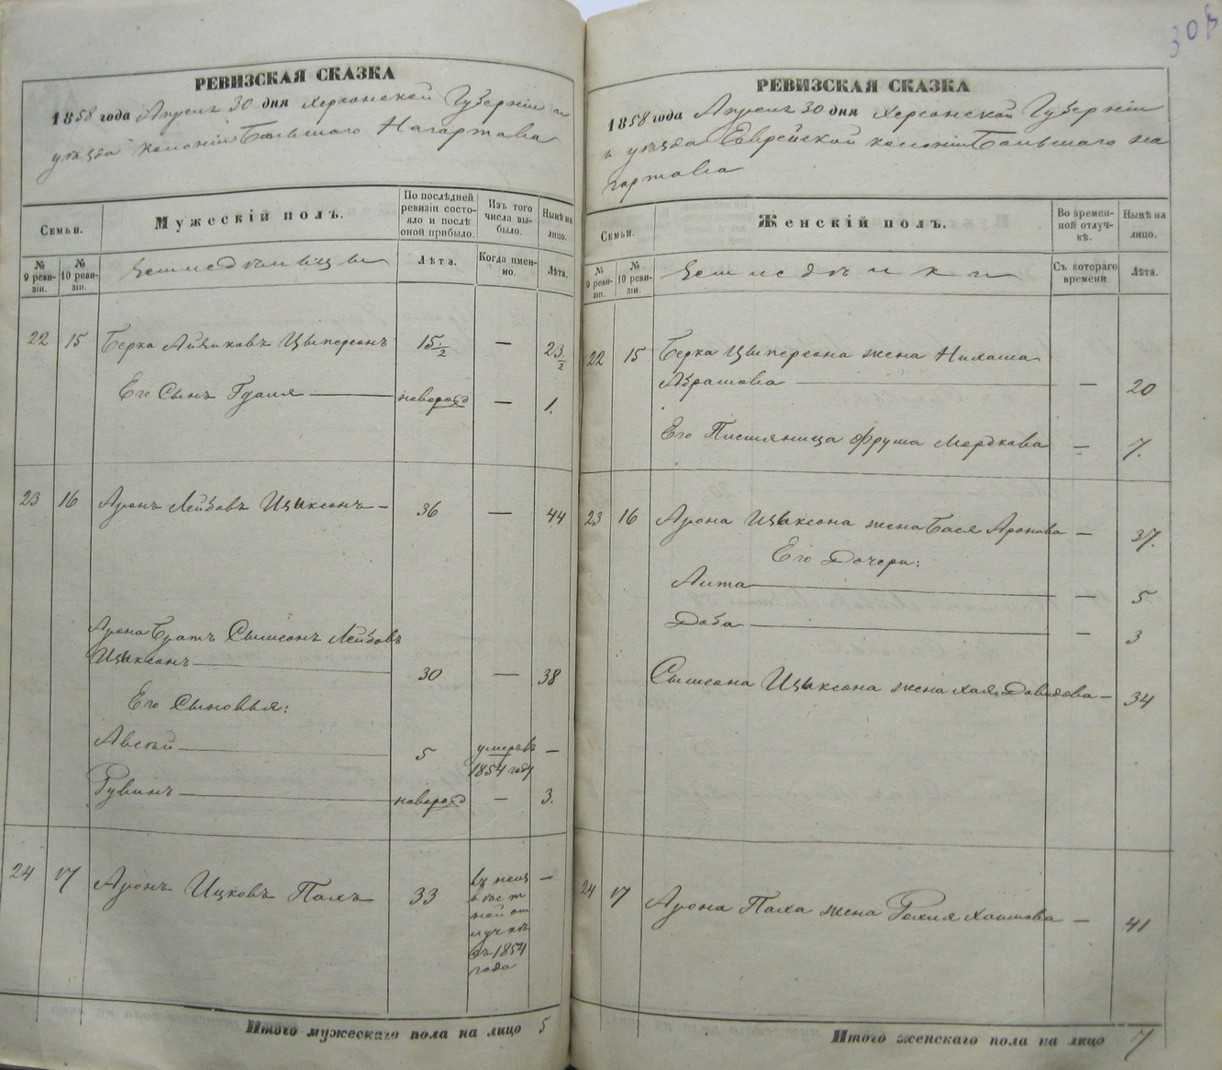 304
РЕВИЗСКАЯ СКАЗКА
1858 года Апреля 30 дня Херсонской Губерніи и
уѣзда колоніи Большаго Нагартава
Семьи.
Мужескій полъ.
По послѣдней ревизіи состояло и послѣ оной прибыло.
Изъ того числа выбыло.
Нынѣ на лицо.
№ 9 ревизіи.
№ 10 ревизіи.
Земледѣльцы
Лѣта.
Когда именно.
Лѣта.
22 15 Берка Айзиковъ Циперсонъ 15 1/2 — 23 1/2
Его Сынъ Гдаля — новорожд — 1.
23 16 Аронъ Лейбовъ Ицыксонъ — 36 — 44
Арона Братъ Сымсонъ Лейбовъ
Ицыксонъ — 30 — 38
Его Сыновья:
— 5 умеръ въ 1854 году —
Рувинъ — новорожд — 3.
24 17 Аронъ Ицковъ Палъ 33 въ неизвѣстной отлучкѣ съ 1854 года —
Итого мужескаго пола на лицо 5
РЕВИЗСКАЯ СКАЗКА
1858 года Апреля 30 дня Херсонской Губерніи
и уѣзда Еврейской колоніи Большаго На
гартава
Семьи.
Женскій полъ.
Во временной отлучкѣ.
Нынѣ на лицо.
№ 9 ревизіи.
№ 10 ревизіи.
Земледѣлки
Съ котораго времени
Лѣта.
22 15 Берка Циперсона жена Нихама
Абрамова — — 20
Его Племяница Фрума Мордкова — 7.
23 16 Арона Ицыксона жена Бася Аронова — 37.
Его Дочери:
— — 5
Доба — — 3
Сымсона Ицыксона жена Хая Давидова — 34
24 17 Арона Пала жена Рохля Хаимова — 41
Итого женскаго пола на лицо 7